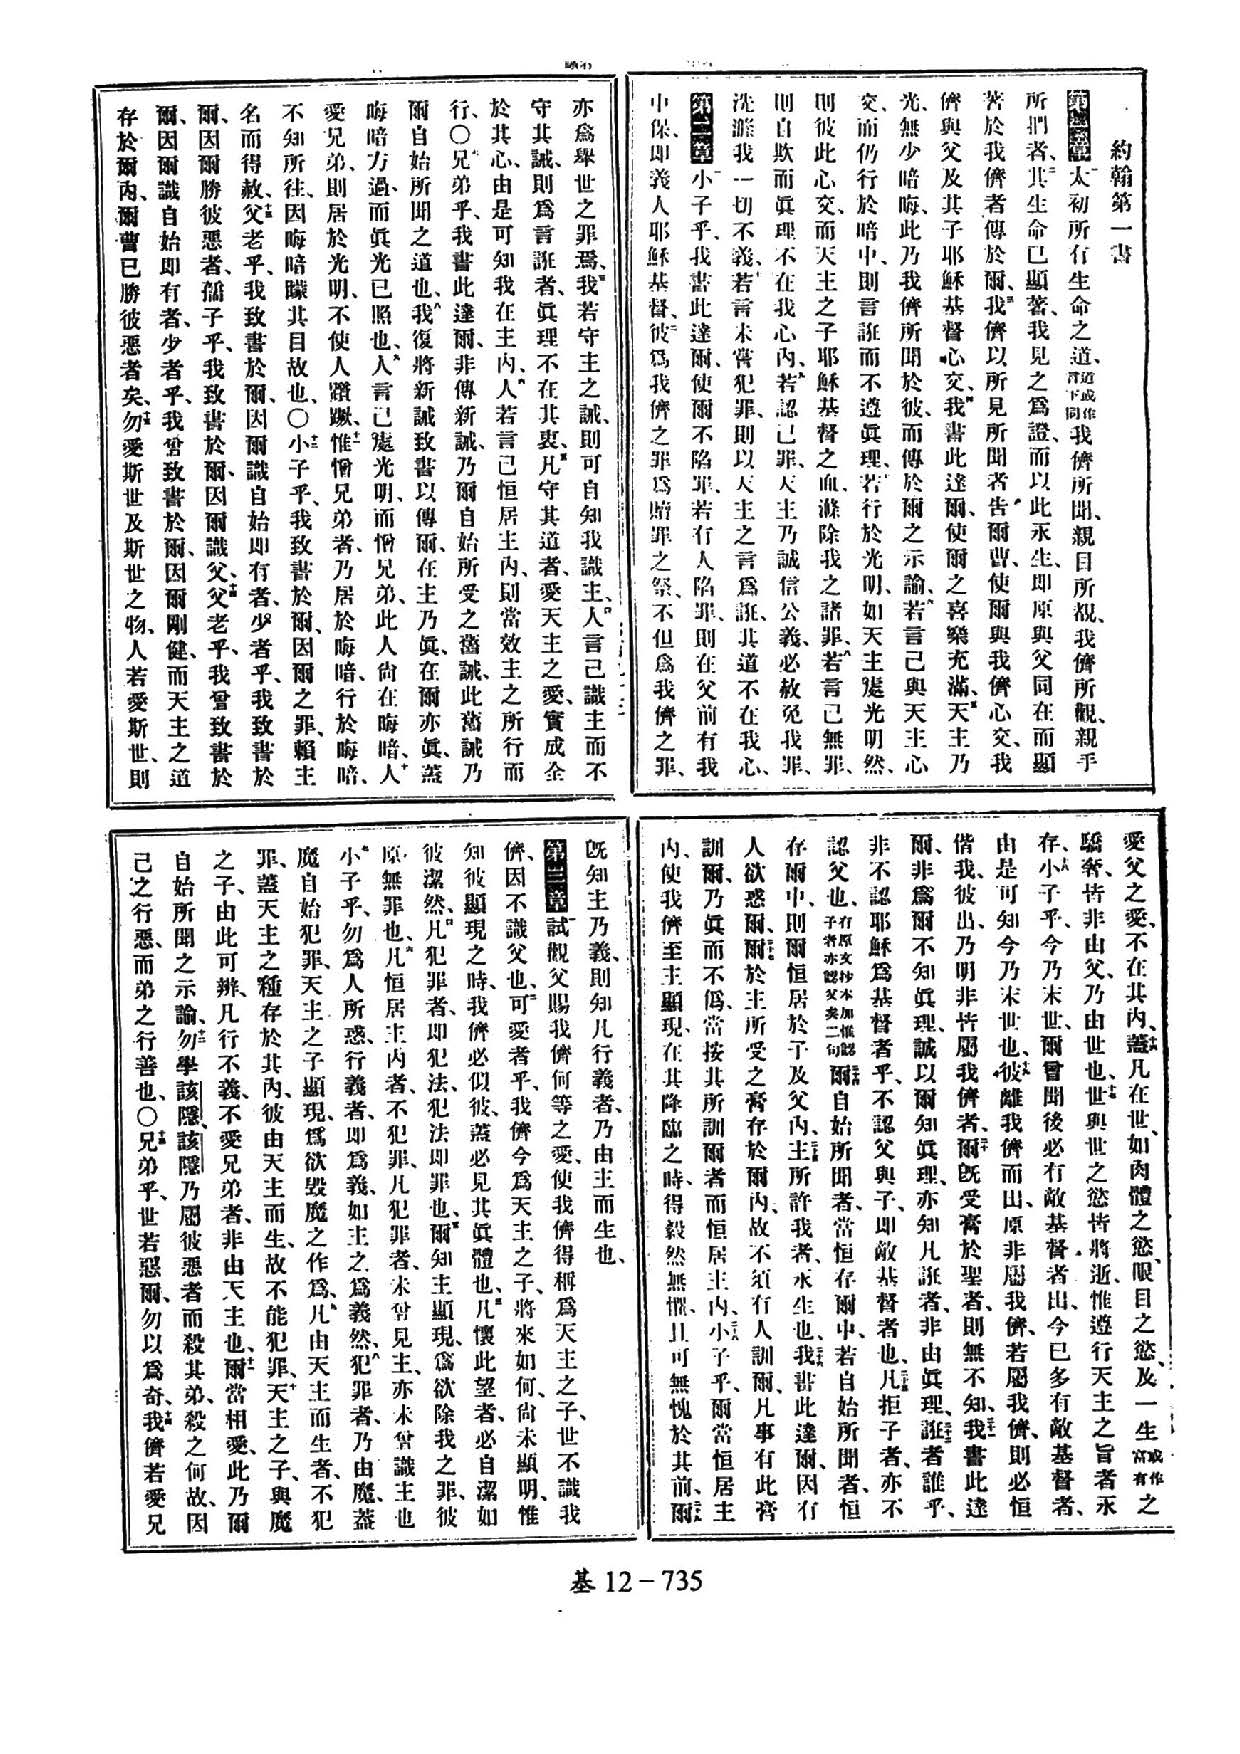 約翰第一書
第一章太初所有生命之道、道或作言下同我儕所聞、親目所視、我儕所觀、親手
所捫者、其生命已顯著、我見之爲證、而以此永生、即原與父同在而顯
著於我儕者傳於爾、我儕以所見所聞者告爾曹、使爾與我儕心交、我
儕與父及其子耶穌基督心交、我書此達爾、使爾之喜樂充滿、天主乃
光、無少暗晦、此乃我儕所聞於彼、而傳於爾之示諭、若言己與天主心
交、而仍行於暗中、則言誑而不遵眞理、若行於光明、如天主處光明然、
則彼此心交、而天主之子耶穌基督之血、滌除我之諸罪、若言己無罪、
則自欺而眞理不在我心內、若認己罪、天主乃誠信公義、必赦免我罪、
洗滌我一切不義、若言未嘗犯罪、則以天主之言爲誑、其道不在我心、
第二章小子乎、我書此達爾、使爾不陷罪、若有人陷罪、則在父前有我
中保、即義人耶穌基督、彼爲我儕之罪爲贖罪之祭、不但爲我儕之罪、
亦爲舉世之罪焉、我若守主之誡、則可自知我識主、人言己識主而不
守其誡、則爲言誑者、眞理不在其衷、凡守其道者、愛天主之愛、實成全
於其心、由是可知我在主內、人若言己恒居主內、則當效主之所行而
行、〇兄弟乎、我書此達爾、非傳新誡、乃爾自始所受之舊誡、此舊誡乃
爾自始所聞之道也、我復將新誡致書以傳爾、在主乃眞、在爾亦眞、蓋
晦暗方過、而眞光已照也、人言己處光明、而憎兄弟、此人尙在晦暗、人
愛兄弟、則居於光明、不使人躓蹶、惟憎兄弟者、乃居於晦暗、行於晦暗、
不知所往、因晦暗矇其目故也、〇小子乎、我致書於爾、因爾之罪、賴主
名而得赦、父老乎、我致書於爾、因爾識自始即有者、少者乎、我致書於
爾、因爾勝彼惡者、孺子乎、我致書於爾、因爾識父、父老乎、我曾致書於
爾、因爾識自始即有者、少者乎、我曾致書於爾、因爾剛健、而天主之道
存於爾內、爾曹已勝彼惡者矣、勿愛斯世及斯世之物、人若愛斯世、則
愛父之愛、不在其內、蓋凡在世、如肉體之慾、眼目之慾、及一生或作富有之
驕奢、皆非由父、乃由世也、世與世之慾皆將逝、惟遵行天主之旨者永
存、小子乎、今乃末世、爾曾聞後必有敵基督者出、今已多有敵基督者、
由是可知今乃末世也、彼離我儕而出、原非屬我儕、若屬我儕、則必恒
偕我、彼出、乃明非皆屬我儕者、爾旣受膏於聖者、則無不知、我書此達
爾、非爲爾不知眞理、誠以爾知眞理、亦知凡誑者、非由眞理、誑者誰乎、
非不認耶穌爲基督者乎、不認父與子、即敵基督者也、凡拒子者、亦不
認父也、有原文抄本加惟認子者亦認父矣二句爾自始所聞者、當恒存爾中、若自始所聞者、恒
存爾中、則爾恒居於子及父內、主所許我者、永生也、我書此達爾、因有
人欲惑爾、爾於主所受之膏存於爾內、故不須有人訓爾、凡事有此膏
訓爾、乃眞而不僞、當按其所訓爾者而恒居主內、小子乎、爾當恒居主
內、使我儕至主顯現、在其降臨之時、得毅然無懼、且可無愧於其前、爾
旣知主乃義、則知凡行義者、乃由主而生也、
第三章試觀父賜我儕何等之愛、使我儕得稱爲天主之子、世不識我
儕、因不識父也、可愛者乎、我儕今爲天主之子、將來如何、尙未顯明、惟
知彼顯現之時、我儕必似彼、蓋必見其眞體也、凡懷此望者、必自潔如
彼潔然、凡犯罪者、即犯法、犯法即罪也、爾知主顯現、爲欲除我之罪、彼
原無罪也、凡恒居主內者、不犯罪、凡犯罪者、未曾見主、亦未曾識主也
小子乎、勿爲人所惑、行義者、即爲義、如主之爲義然、犯罪者、乃由魔、蓋
魔自始犯罪、天主之子顯現、爲欲毀魔之作爲、凡由天主而生者、不犯
罪、蓋天主之種存於其內、彼由天主而生、故不能犯罪、天主之子、與魔
之子、由此可辨、凡行不義、不愛兄弟者、非由天主也、爾當相愛、此乃爾
自始所聞之示諭、勿學該隱、該隱乃屬彼惡者而殺其弟、殺之何故、因
己之行惡、而弟之行善也、〇兄弟乎、世若惡爾、勿以爲奇、我儕若愛兄
基12－735